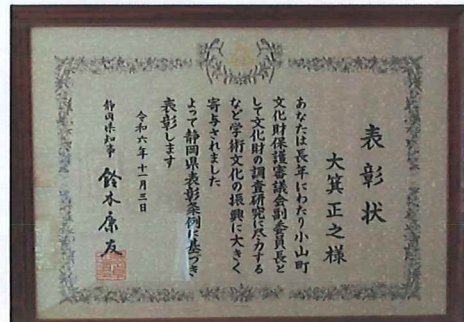 表彰状
大箕正之様
あなたは長年にわたり小山町
文化財保護審議会副委員長と
して文化財の調査研究に尽力する
など学術文化の振興に大きく
寄与されました
よって静岡県表彰条例に基づき
表彰します
令和六年十一月三日
静岡県知事 鈴木康友